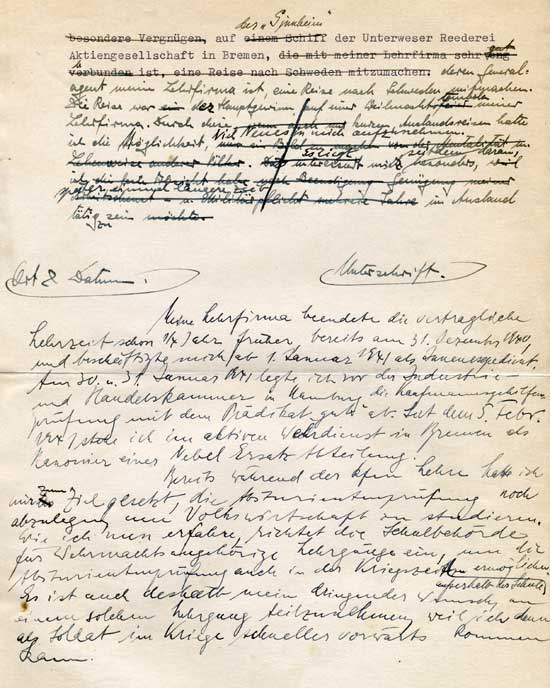 des "Ginnheim"
besondere Vergnügen, auf einem Schiff der Unterweser Reederei
Aktiengesellschaft in Bremen, die mit meiner Lehrfirma sehr eng gut
verbunden ist, eine Reise nach Schweden mitzumachen. deren General-
agent meine Lehrfirma ist, eine Reise nach Schweden mitzumachen.
Die Reise war ein der Hauptgewinn auf einer Weihnachts meiner
Lehrfirma. Durch diese wenn auch nur kurzen Auslandsreisen hatte
ich die Möglichkeit, viel Neues in mich aufzunehmen.
Lebensweise anderer Völker. Das interessiert mich besonders, weil
ich die feste Absicht habe, nach Beendigung meiner
später einmal längere Zeit
Arbeitsdienst- u. Militärpflicht mehrere Jahre im Ausland
tätig zu sein möchte.
Ort & Datum.
Unterschrift.
Meine Lehrfirma beendete die vertragliche
Lehrzeit schon 1/4 Jahr früher bereits am 31. Dezember 1940,
und beschäftigte mich ab 1. Januar 1941 als
Am 30. u. 31. Januar 1941 legte ich vor der Industrie-
und Handelskammer in Hamburg die Kaufmannsgehilfen-
prüfung mit dem Prädikat "gut" ab. Seit dem 5. Febr.
1941 stehe ich im aktiven Wehrdienst in Bremen als
Kanonier einer Nebel Ersatz Abteilung.
Bereits während der kfm Lehre hatte ich
mir zum Ziel gesetzt, die Abiturientenprüfung noch
abzulegen um Volkswirtschaft zu studieren.
Wie ich nun erfahre, richtet die Schulbehörde
für Wehrmachtsangehörige Lehrgänge ein, um die
Abiturientenprüfung auch in der Kriegszeit zu ermöglichen.
Es ist auch deshalb mein dringender Wunsch, an
einem solchen Lehrgang teilzunehmen, weil ich dann
als Soldat im Kriege schneller vorwärts kommen
kann.